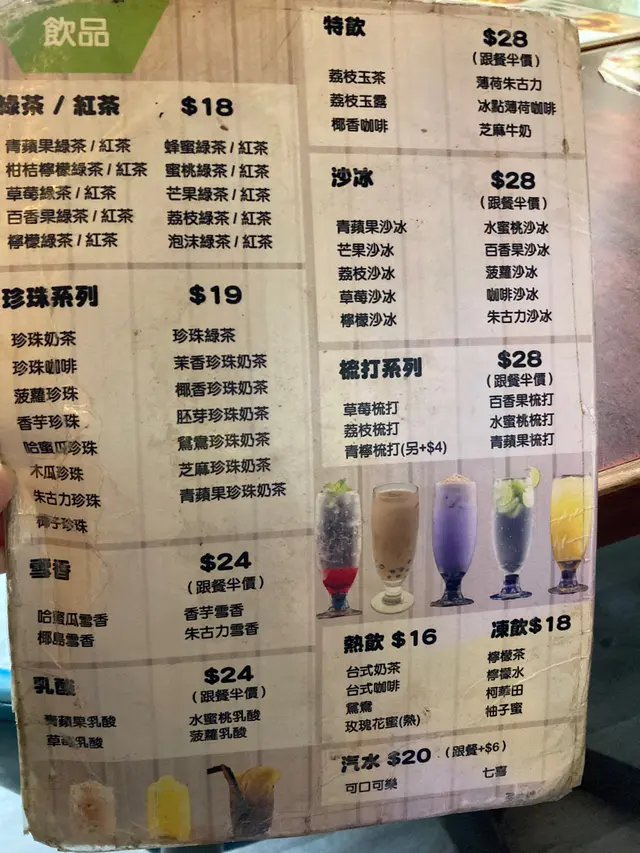 飲品
綠茶 / 紅茶 $18
青蘋果綠茶 / 紅茶 蜂蜜綠茶 / 紅茶
柑桔檸檬綠茶 / 紅茶 蜜桃綠茶 / 紅茶
草莓綠茶 / 紅茶 芒果綠茶 / 紅茶
百香果綠茶 / 紅茶 荔枝綠茶 / 紅茶
檸檬綠茶 / 紅茶 泡沫綠茶 / 紅茶
珍珠系列 $19
珍珠奶茶 珍珠綠茶
珍珠咖啡 茉香珍珠奶茶
菠蘿珍珠 椰香珍珠奶茶
香芋珍珠 胚芽珍珠奶茶
哈蜜瓜珍珠 鴛鴦珍珠奶茶
木瓜珍珠 芝麻珍珠奶茶
朱古力珍珠 青蘋果珍珠奶茶
椰子珍珠
雪香 $24
(跟餐半價)
哈蜜瓜雪香 香芋雪香
椰島雪香 朱古力雪香
乳酸 $24
(跟餐半價)
青蘋果乳酸 水蜜桃乳酸
草莓乳酸 菠蘿乳酸
特飲 $28
(跟餐半價)
荔枝玉茶 薄荷朱古力
荔枝玉露 冰點薄荷咖啡
椰香咖啡 芝麻牛奶
沙冰 $28
(跟餐半價)
青蘋果沙冰 水蜜桃沙冰
芒果沙冰 百香果沙冰
荔枝沙冰 菠蘿沙冰
草莓沙冰 咖啡沙冰
檸檬沙冰 朱古力沙冰
梳打系列 $28
(跟餐半價)
草莓梳打 百香果梳打
荔枝梳打 水蜜桃梳打
青檸梳打(另+$4) 青蘋果梳打
熱飲 $16
台式奶茶
台式咖啡
鴛鴦
玫瑰花蜜(熱)
凍飲$18
檸檬茶
檸檬水
柯華田
柚子蜜
汽水 $20 (跟餐+$6)
可口可樂 七喜